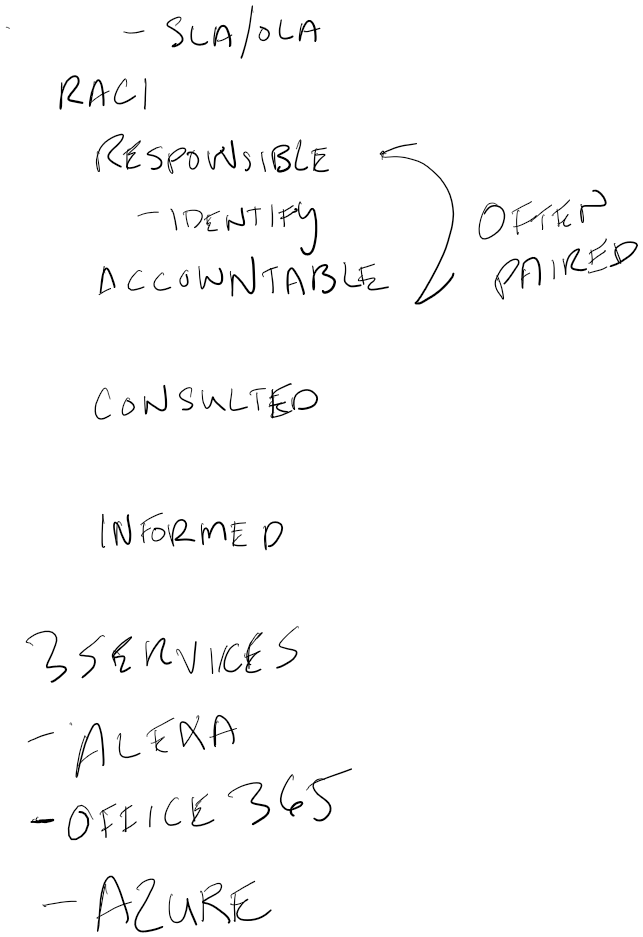 - SLA/OLA
RACI
RESPONSIBLE
- IDENTIFY
OFTEN
PAIRED
ACCOUNTABLE
CONSULTED
INFORMED
3 SERVICES
- ALEXA
- OFFICE 365
- AZURE